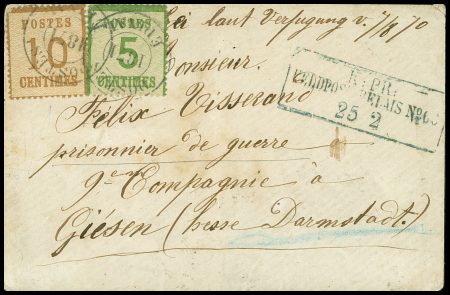 POSTES
10
CENTIMES
POSTES
5
CENTIMES
laut Verfugung v. 7/8 70
Monsieur.
Félix Tisserand
K. PR.
FELDPOST RELAIS No
25 2
prisonnier de guerre
9e Compagnie à
Giésen (hesse Darmstadt.)